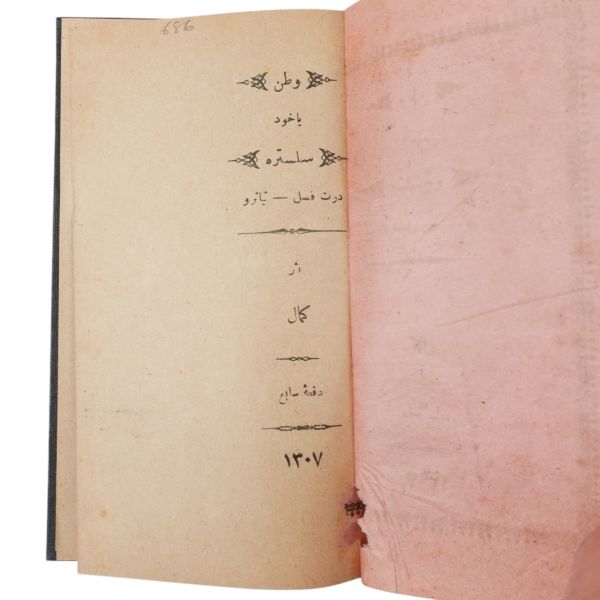 686
وطن
یاخود
سلستره
درت فصل — تیاترو
اثر
کمال
دفعهٔ سابع
١٣٠٧